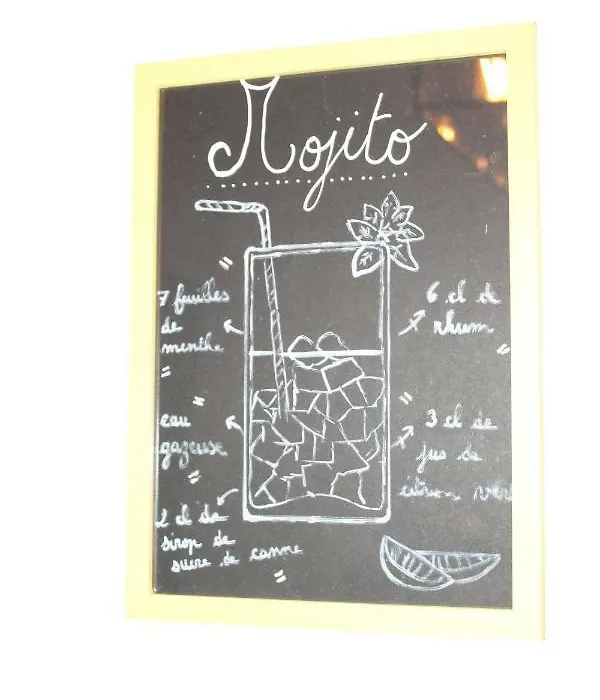 Mojito
7 feuilles
de
menthe
6 cl de
rhum
eau
gazeuse
3 cl de
jus de
citron vert
2 cl de
sirop de
sucre de canne